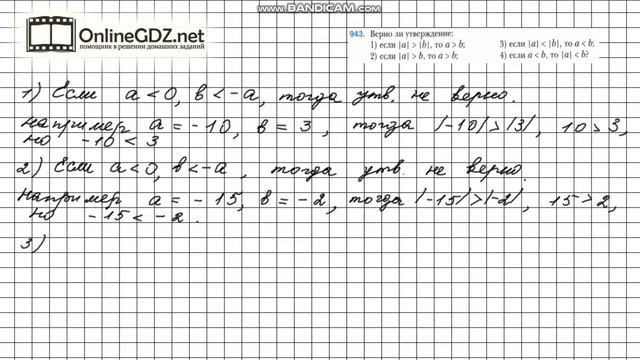 www.BANDICAM.com
OnlineGDZ.net
помощник в решении домашних заданий
943. Верно ли утверждение:
1) если |a| > |b|, то a > b;
2) если |a| > b, то a > b;
3) если |a| < |b|, то a < b;
4) если a < b, то |a| < b?
1) Если a < 0, b < -a, тогда утв. не верно.
Например a = -10, b = 3, тогда |-10| > |3|, 10 > 3,
но -10 < 3
2) Если a < 0, b < -a, тогда утв. не верно.
Например a = -15, b = -2, тогда |-15| > |-2|, 15 > 2,
но -15 < -2.
3)